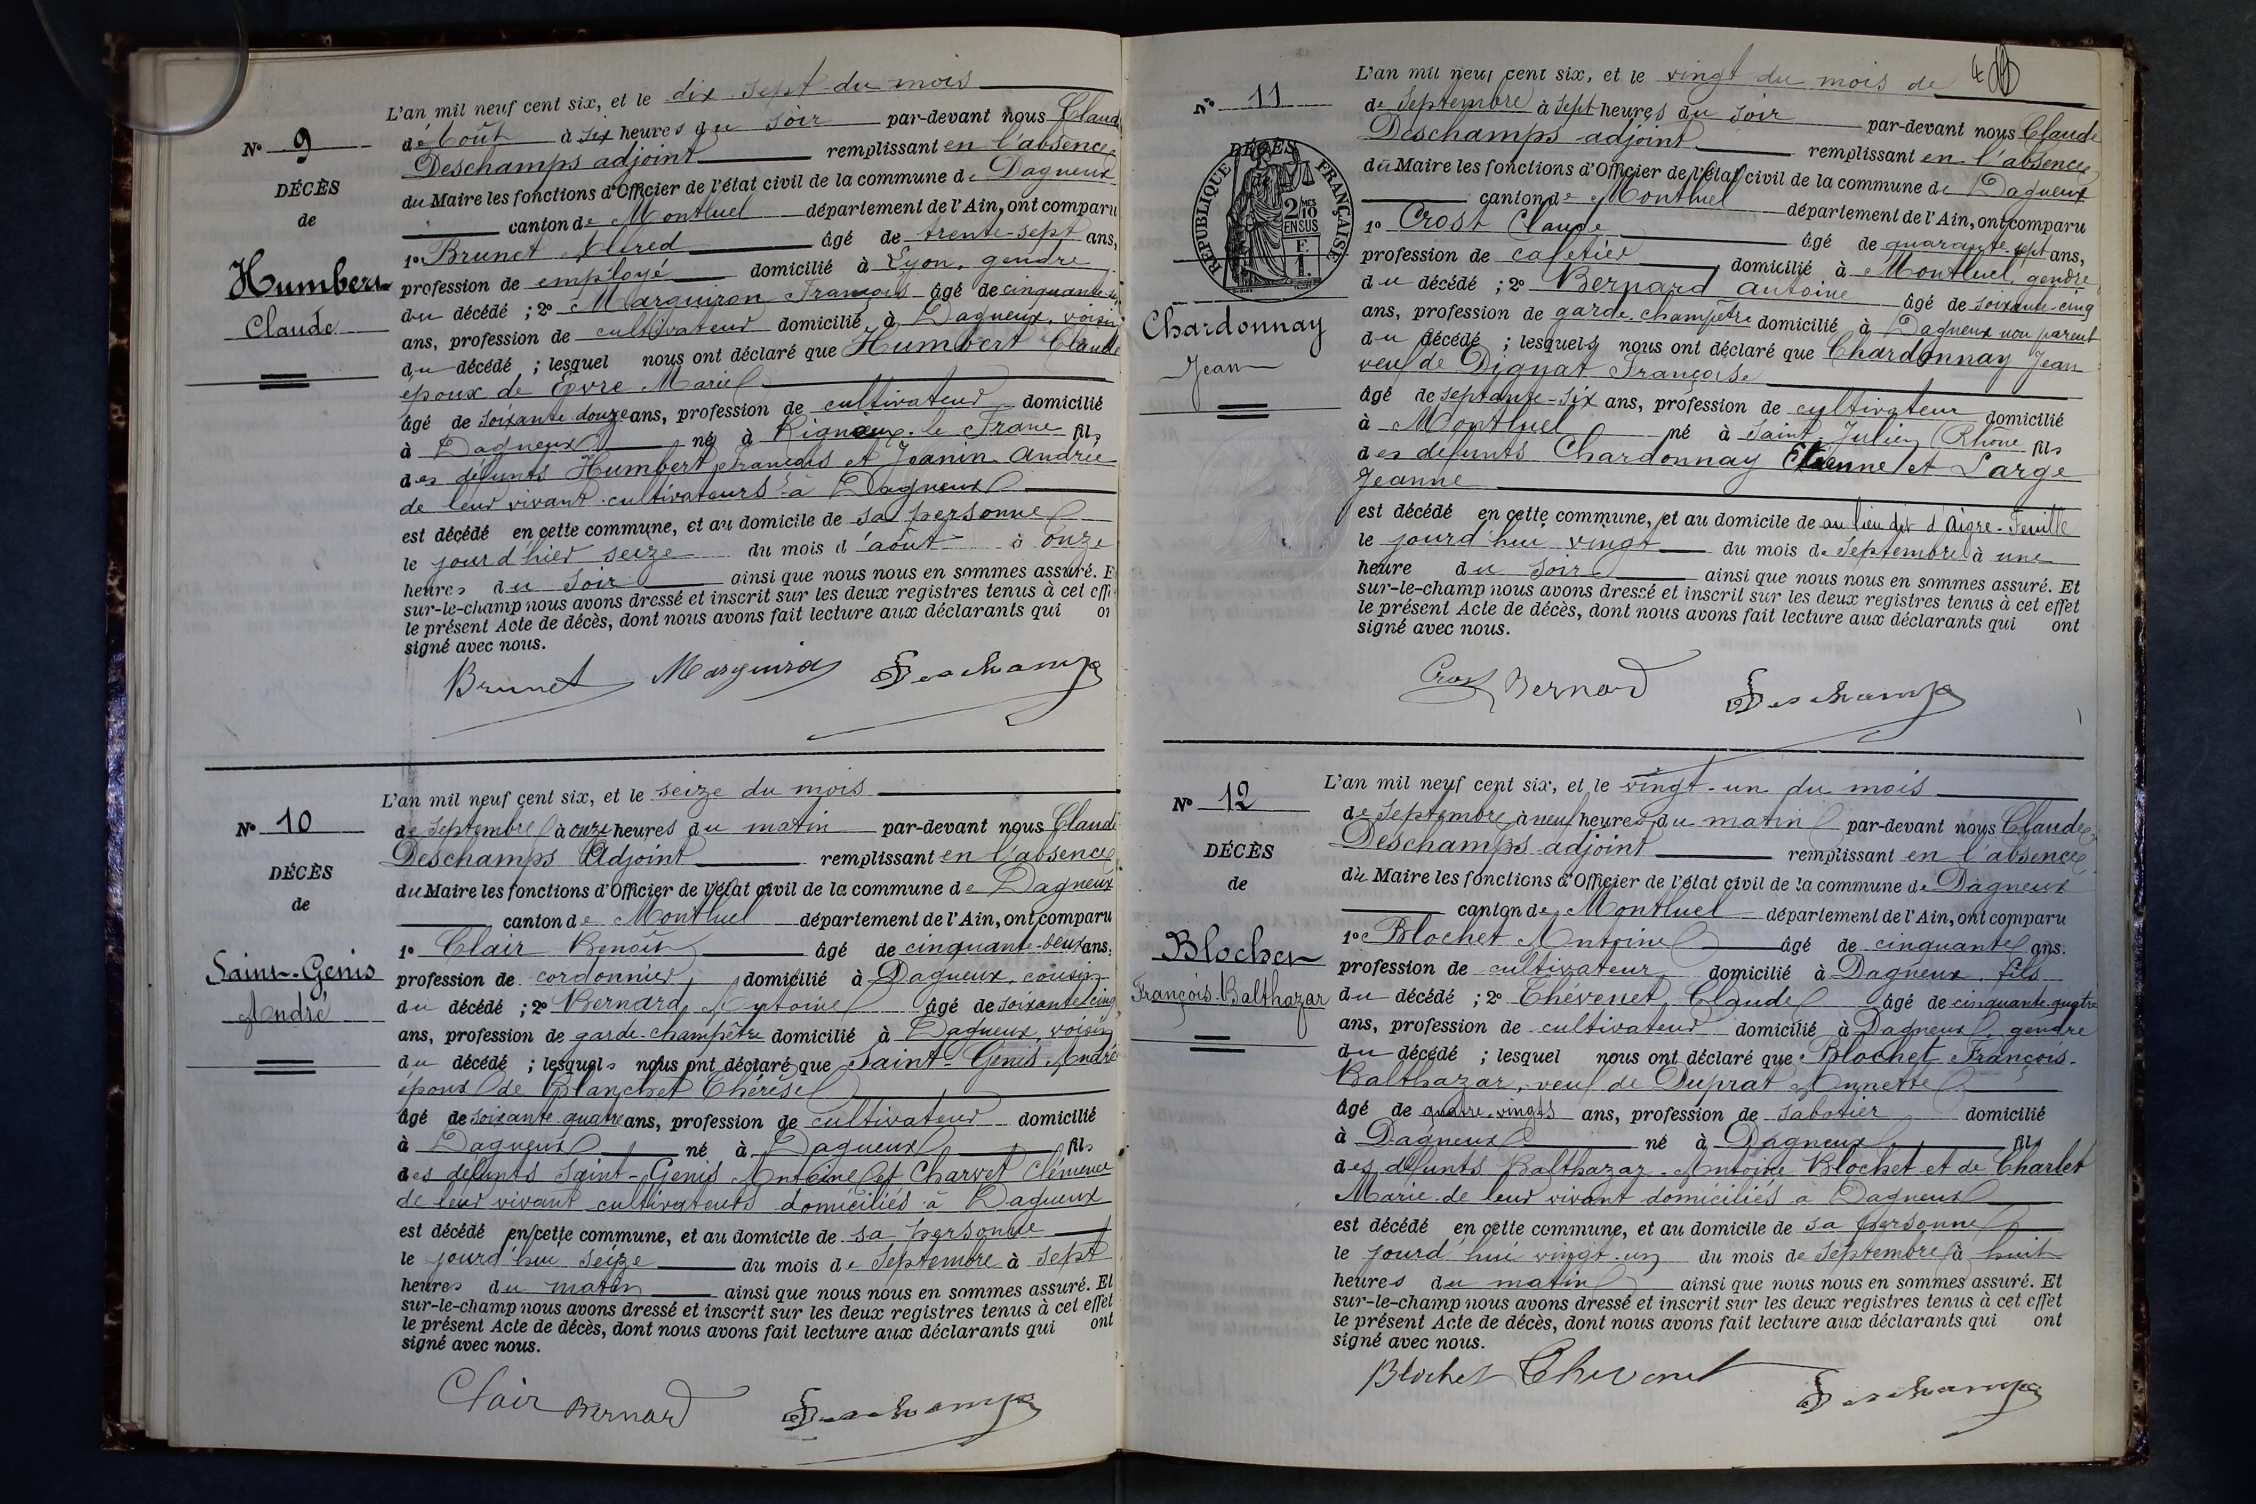 N° 9
DÉCÈS
de
Humbert
Claude
L'an mil neuf cent six, et le dix sept du mois
d'août à six heures du soir par-devant nous Claude
Deschamps adjoint remplissant en l'absence
du Maire les fonctions d'Officier de l'état civil de la commune de Dagneux
canton de Montluel département de l'Ain, ont comparu
1° Brunet Alfred âgé de trente-sept ans,
profession de employé domicilié à Lyon, gendre
du décédé ; 2° Marguiron François âgé de cinquante-six
ans, profession de cultivateur domicilié à Dagneux, voisin
du décédé ; lesquel nous ont déclaré que Humbert Claude
époux de Epvre Marie
âgé de soixante douze ans, profession de cultivateur domicilié
à Dagneux né à Rigneux-le-Franc fils
des défunts Humbert François et Jeanin Andrée
de leur vivant cultivateurs à Dagneux
est décédé en cette commune, et au domicile de sa personne
le jourd'hier seize du mois d'août à onze
heures du soir ainsi que nous nous en sommes assuré. E
sur-le-champ nous avons dressé et inscrit sur les deux registres tenus à cet effe
le présent Acte de décès, dont nous avons fait lecture aux déclarants qui on
signé avec nous.
Brunet Marguiron Deschamps
N° 10
DÉCÈS
de
Saint-Genis
André
L'an mil neuf cent six, et le seize du mois
de Septembre à onze heures du matin par-devant nous Claude
Deschamps Adjoint remplissant en l'absence
du Maire les fonctions d'Officier de l'état civil de la commune de Dagneux
canton de Montluel département de l'Ain, ont comparu
1° Clair Benoît âgé de cinquante-deux ans,
profession de cordonnier domicilié à Dagneux, cousin
du décédé ; 2° Bernard Antoine âgé de soixante cinq
ans, profession de garde-champêtre domicilié à Dagneux, voisin
du décédé ; lesquels nous ont déclaré que Saint-Genis André
époux de Blanchet Thérèse
âgé de soixante quatre ans, profession de cultivateur domicilié
à Dagneux né à Dagneux fils
des défunts Saint-Genis Antoine et Charvet Clémence
de leur vivant cultivateurs domiciliés à Dagneux
est décédé en cette commune, et au domicile de sa personne
le jourd'hui seize du mois de Septembre à sept
heures du matin ainsi que nous nous en sommes assuré. Et
sur-le-champ nous avons dressé et inscrit sur les deux registres tenus à cet effet
le présent Acte de décès, dont nous avons fait lecture aux déclarants qui ont
signé avec nous.
Clair Bernard Deschamps
N° 11
DÉCÈS
RÉPUBLIQUE FRANÇAISE
2/10 MES
EN SUS
F.
1.
Chardonnay
Jean
L'an mil neuf cent six, et le vingt du mois de
de Septembre à sept heures du soir par-devant nous Claude
Deschamps adjoint remplissant en l'absence
du Maire les fonctions d'Officier de l'état civil de la commune de Dagneux
canton de Montluel département de l'Ain, ont comparu
1° Crost Claude âgé de quarante-sept ans,
profession de cafetier domicilié à Montluel, gendre
du décédé ; 2° Bernard Antoine âgé de soixante-cinq
ans, profession de garde champêtre domicilié à Dagneux non parent
du décédé ; lesquels nous ont déclaré que Chardonnay Jean
veuf de Dignat Françoise
âgé de septante-six ans, profession de cultivateur domicilié
à Montluel né à Saint Julien (Rhône fils
des défunts Chardonnay Etienne et Large
Jeanne
est décédé en cette commune, et au domicile de au lieu dit d'Aigre-Feuille
le jourd'hui vingt du mois de Septembre à une
heure du soir ainsi que nous nous en sommes assuré. Et
sur-le-champ nous avons dressé et inscrit sur les deux registres tenus à cet effet
le présent Acte de décès, dont nous avons fait lecture aux déclarants qui ont
signé avec nous.
Crost Bernard Deschamps
N° 12
DÉCÈS
de
Blochet
François-Balthazar
L'an mil neuf cent six, et le vingt-un du mois
de Septembre à neuf heures du matin par-devant nous Claude
Deschamps adjoint remplissant en l'absence
du Maire les fonctions d'Officier de l'état civil de la commune de Dagneux
canton de Montluel département de l'Ain, ont comparu
1° Blochet Antoine âgé de cinquante ans.
profession de cultivateur domicilié à Dagneux, fils
du décédé ; 2° Thévenet Claude âgé de cinquante-quatre
ans, profession de cultivateur domicilié à Dagneux, gendre
du décédé ; lesquel nous ont déclaré que Blochet François-
Balthazar, veuf de Duprat Annette
âgé de quatre-vingts ans, profession de sabotier domicilié
à Dagneux né à Dagneux fils
des défunts Balthazar-Antoine Blochet et de Charlet
Marie de leur vivant domiciliés à Dagneux
est décédé en cette commune, et au domicile de sa personne
le jourd'hui vingt-un du mois de Septembre à huit
heures du matin ainsi que nous nous en sommes assuré. Et
sur-le-champ nous avons dressé et inscrit sur les deux registres tenus à cet effet
le présent Acte de décès, dont nous avons fait lecture aux déclarants qui ont
signé avec nous.
Blochet Thevenet Deschamps